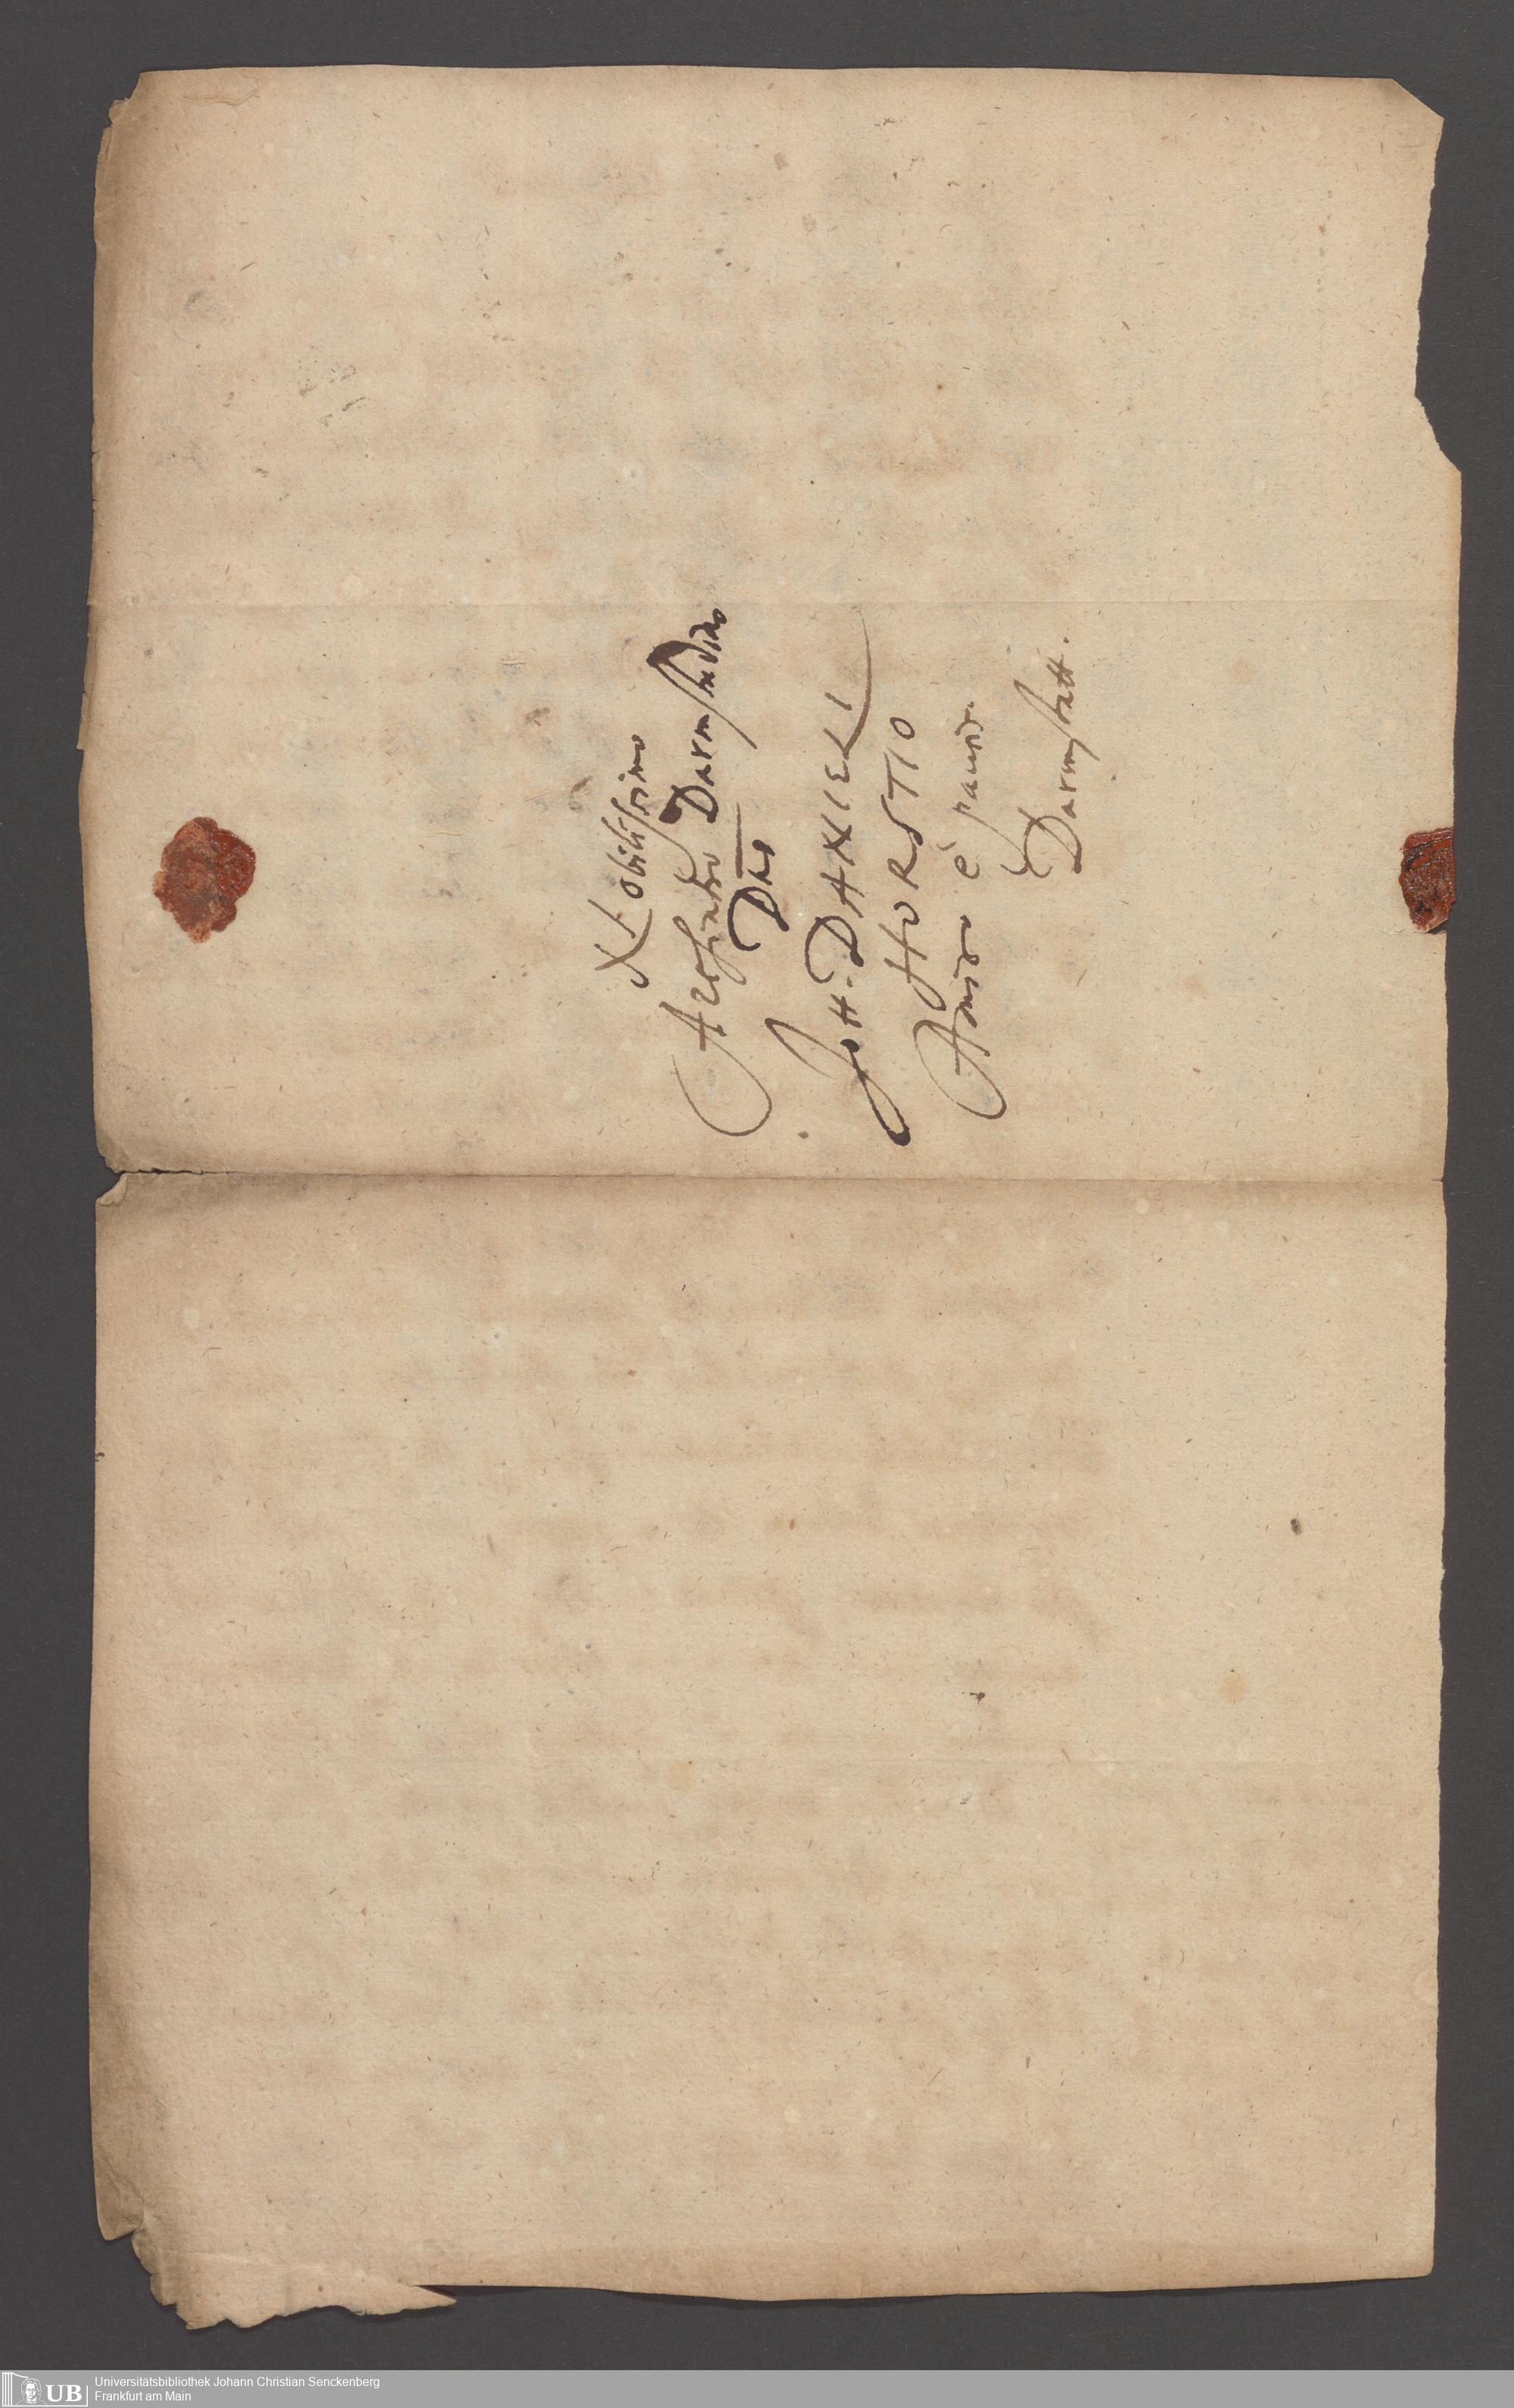 Nobilissimo
Archiatro Darmstadino
Dno
JOH. DANIELI
HORSTIO
Amico è paucis.
Darmstatt.
UB
Universitätsbibliothek Johann Christian Senckenberg
Frankfurt am Main